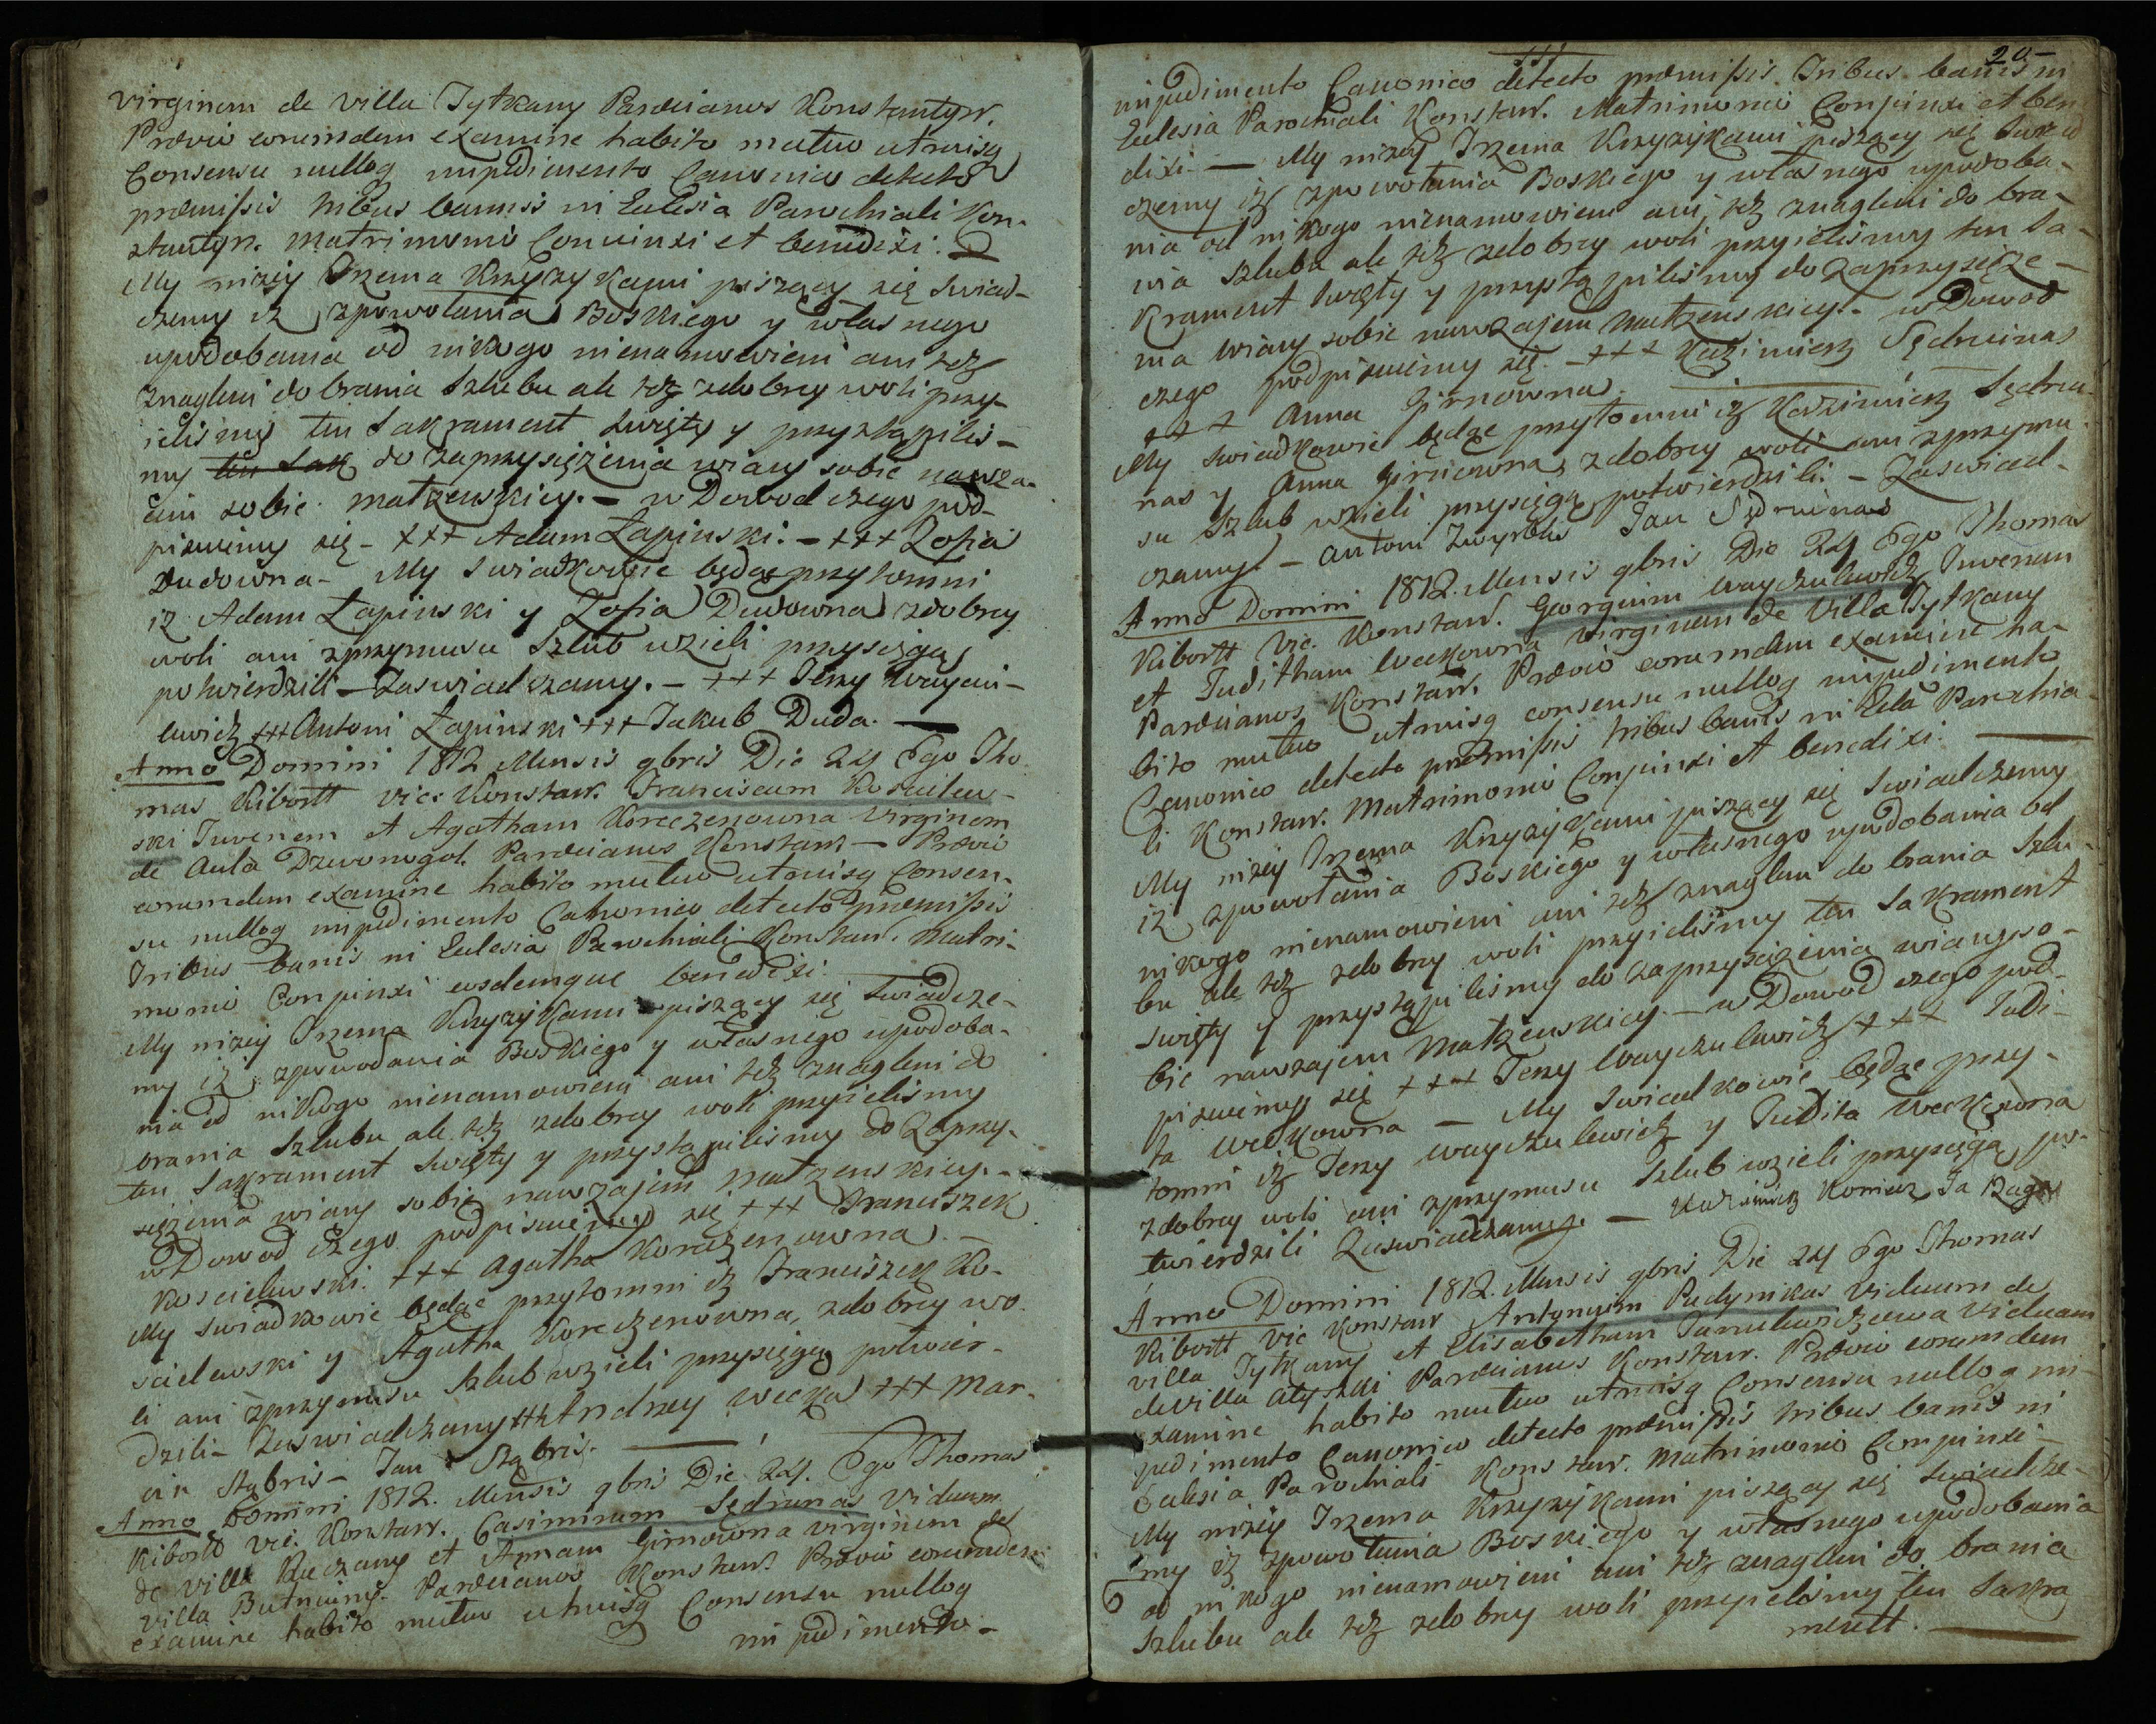 virginem de villa Tytkany Parecianos Konstantyn.
Prævio eorumdem examine habito mutuo utriusq
Consensu nulloq impedimento Canonico detecto
præmissis tribus bannis in Eclesia Parochiali Kon-
stantyn. Matrimonio Conjunxi et benedixi.
My niżey Trzema Krzyzykami piszący się swiad-
czemy iż zpowołania Boskiego y własnego
upodobania od nikogo nienamowieni ani też
znagleni do brania Szlubu ale też zdobrey woli przy-
ieliśmy ten Sakrament święty y przystąpiliś-
my ten Sak do zaprzysiężenia wiary sobie nawza-
iem sobie małżenskiey. - w Dowod czego pod-
pisuiemy się - +++ Adam Łapinski. - +++ Zofia
Dudowna - My Swiadkowie będąc przytomni
iż Adam Łapinski y Zofia Dudowna zdobrey
woli ani zprzymusu Szlub wzieli przysięgą
potwierdzili - Zaswiadczamy. - +++ Jerzy Waycu-
lewicz +++ Antoni Łapinski +++ Jakub Duda.
Anno Domini 1812 Mensis 9bris Die 24 Ego Tho
mas Kibortt Vic. Konstan. Franciscum Koscielew-
ski Juvenem et Agatham Koreczenowna Virginem
de Aula Dzwonogoł. Parecianos Konstan. - Prævio
eorumdem examine habito mutuo utriusq Consen-
su nulloq impedimento Cahonico detecto præmissis
Tribus banis in Eclesia Parochiali Konstan. Matri-
monio Conjunxi eosdemque benedixi.
My niżey Trzema Krzyzykami piszący się swiadcze-
my iż zpowodania Boskiego y własnego upodoba-
nia od nikogo nienamowieni ani też znagleni do
brania Szlubu ale też zdobrey woli przyieliśmy
ten Sakrament Swięty y przystąpiliśmy do Zaprzy-
siężenia wiary sobie nawzajem Małżenskiey. -
w Dowod czego podpisuiemy się +++ Franciszek
Koscielewski. +++ Agatha Koreczenowna. -
My Swiadkowie będąc przytomni iż Franciszek Ko-
scielewski y Agatha Koreczenowna, zdobrey wo-
li ani zprzymusu Szlub wzieli przysięgą potwier-
dzili - Zaswiadczamy +++ Andrzey Wecka +++ Mar-
cin Stąbris - Jan Stąbris.
Anno Domini 1812. Mensis 9bris Die 24. Ego Thomas
Kibortt Vic. Konstan. Casimirum Sędrunas Viduum
de Villa Ruczany et Annam Girnowna virginem de
Villa Butniuny. Parecianos Konstan. Prævio eorumdem
examine habito mutuo utriusq Consensu nulloq
impedimento -
20 -
impedimento Canonico detecto præmissis Tribus banis in
Eclesia Parochiali Konstan. Matrimonio Conjunxi et bene
dixi. - My niżey Trzema Krzyzykami piszący się Swiad
czemy iż zpowołania Boskiego y własnego upodoba-
nia od nikogo nienamowieni ani też znagleni do bra-
nia Szlubu ale też zdobrey woli przyieliśmy ten Sa-
krament Swięty y przystąpiliśmy do Zaprzysięże-
nia wiary sobie nawzajem Małżenskiey. - w Dowod
czego podpisuiemy się. - +++ Kazimierz Sędrunas
+++ Anna Girnowna.
My Swiadkowie będąc przytomni iż Kazimierz Sędru-
nas y Anna Girniowna, zdobrey woli ani zprzymu-
su Szlub wzieli przysięgą potwierdzili. - Zaswiad-
czamy. - Antoni Zwyrblis Jan Sędrunas
Anno Domini 1812. Mensis 9bris Die 24 Ego Thomas
Kibortt Vic. Konstan. Georgium Wayczulewicz Juvenem
et Juditham Weckowna Virginem de Villa Tytkany
Parecianos Konstan. Prævio eorumdem examine ha-
bito mutuo utriusq consensu nulloq impedimento
Canonico detecto præmissis tribus banis in Ecla Parochia
li Konstan. Matrimonio Conjunxi et benedixi.
My niżey Trzema Krzyzykami piszący się Swiadczemy
iż zpowołania Boskiego y własnego upodobania od
nikogo nienamowieni ani też znagleni do brania Szlu-
bu ale też zdobrey woli przyieliśmy ten Sakrament
Swięty y przystąpiliśmy do zaprzysiężenia wiary so-
bie nawzajem Małżenskiey. - w Dowod czego pod-
pisuiemy się +++ Jerzy Wayczulewicz +++ Judi-
ta Weckowna - My Swiadkowie będąc przy-
tomni iż Jerzy Wayczulewicz y Judita Weckowna
zdobrey woli ani zprzymusu Szlub wzieli przysięgą po-
twierdzili Zaswiadczamy. - Kazimierz Ja
Anno Domini 1812. Mensis 9bris Die 24 Ego Thomas
Kibortt Vic Konstan Antonium Pudynikas Viduum de
villa Tytkany et Elisabetham Janulewiczewa Viduam
de villa Parecianos Konstan. Prævio eorumdem
examine habito mutuo utriusq Consensu nulloq im-
pedimento Canonico detecto præmissis tribus banis in
Eclesia Parochiali Konstan. Matrimonio Conjunxi -
My niżey Trzema Krzyzykami piszący się Swiadcze-
my iż zpowołania Boskiego y własnego upodobania
od nikogo nienamowieni ani też znagleni do brania
Szlubu ale też zdobrey woli przyieliśmy ten Sakra
mentt.